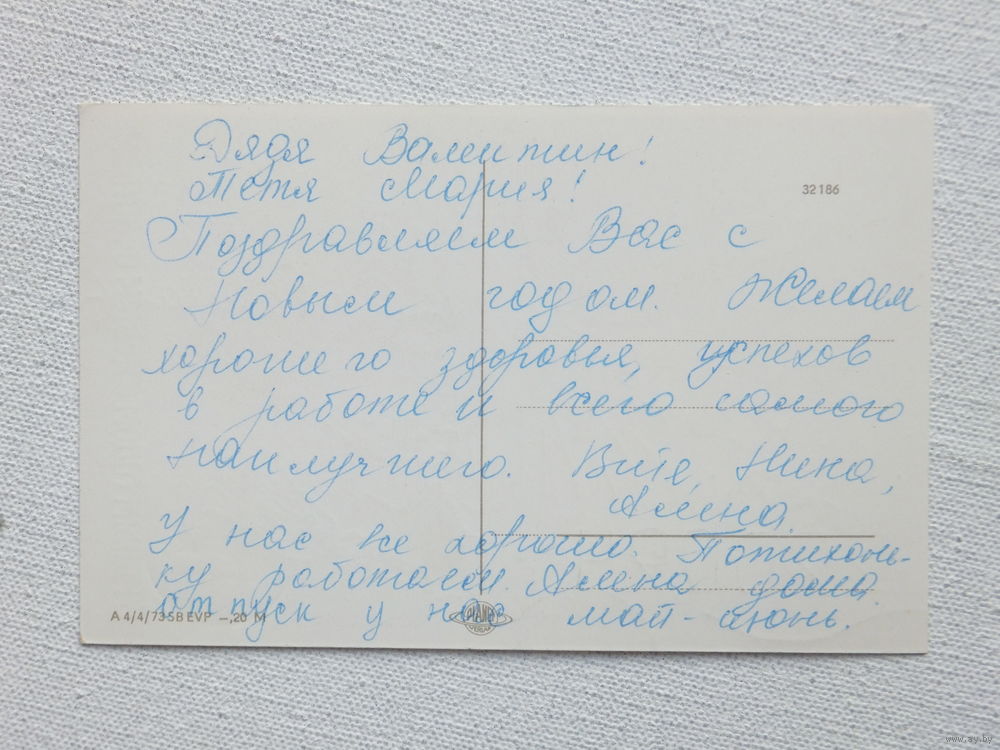 Дядя Валентин!
Тетя Мария!
32186
Поздравляем Вас с
Новым годом. Желаем
хорошего здоровья, успехов
в работе и всего самого
наилучшего. Витя, Нина,
Алена.
У нас все хорошо. Потихонь-
ку работаем. Алена дома.
Отпуск у нас май - июнь.
A 4/4/73 SB EVP -,20 M
PLANET
VERLAG
www.ay.by